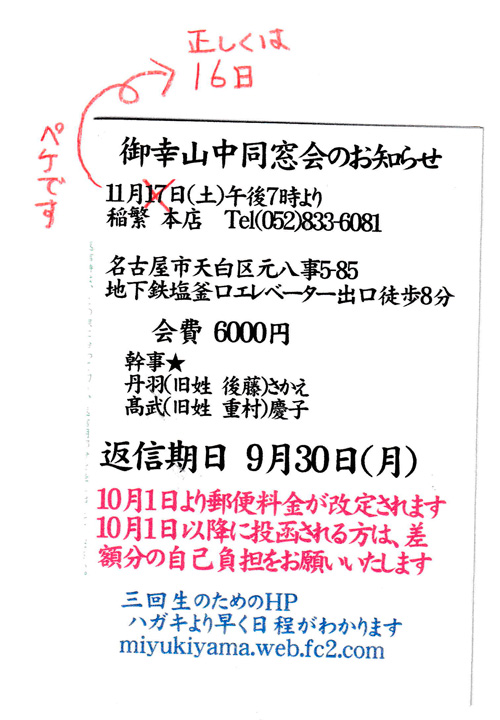 正しくは
16日
ペケです
御幸山中同窓会のお知らせ
11月17日(土)午後7時より
稲繁 本店 Tel(052)833-6081
名古屋市天白区元八事5-85
地下鉄塩釜口エレベーター出口徒歩8分
会費 6000円
幹事★
丹羽(旧姓 後藤)さかえ
髙武(旧姓 重村)慶子
返信期日 9月30日(月)
10月1日より郵便料金が改定されます
10月1日以降に投函される方は、差
額分の自己負担をお願いいたします
三回生のためのHP
ハガキより早く日程がわかります
miyukiyama.web.fc2.com